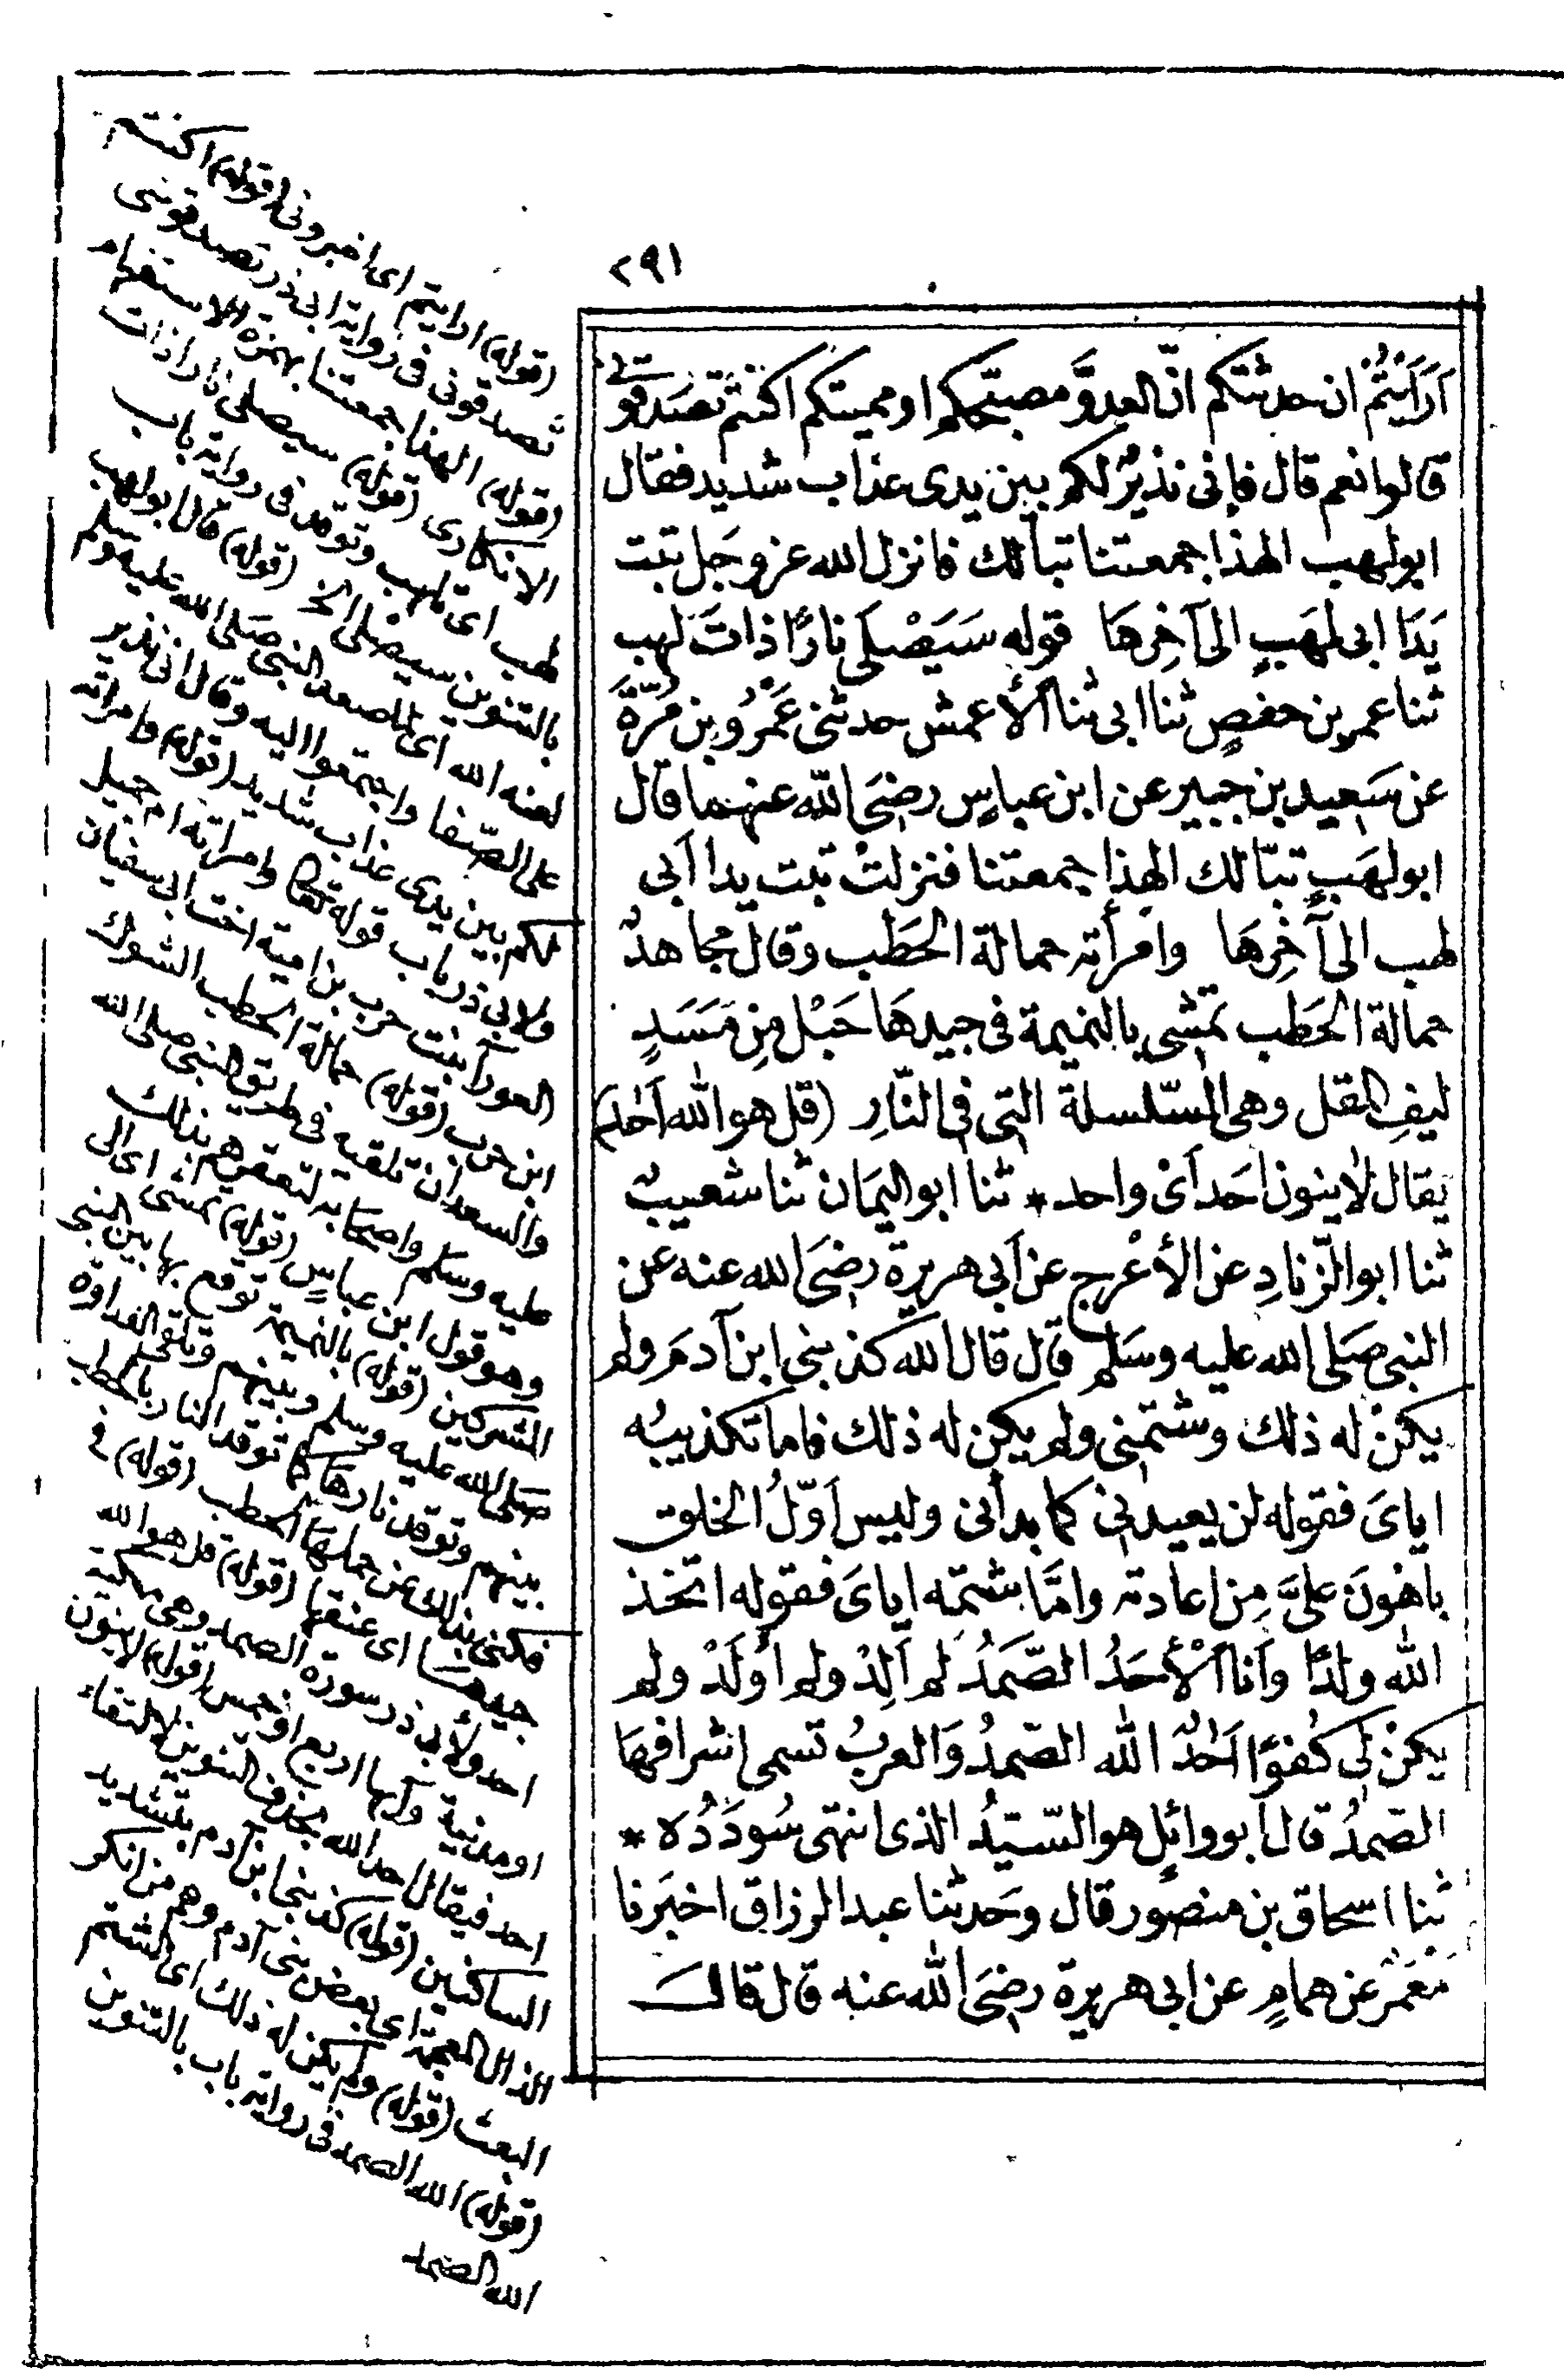 ٢٩١
اَرَاَيْتُمْ ان حدثتكم انّ العدوَّ مصبّحكم او ممسيكم اكنتم تصَدقونى
قالوا نعم قال فإنى نذيرٌ لكم بين يدى عذاب شديد فقال
ابو لهب الهذا جمعتنا تبا لك فانزل الله عز وجَل تبت
يَدَا ابى لهَبٍ الى آخِرِهَا قوله سَيَصْلَى نارًا ذاتَ لهب
ثنا عمر بن حفصٍ ثنا ابى ثنا الأعمش حدثنى عَمْرُو بن مُرَّةَ
عن سَعيد بن جبير عن ابن عباسٍ رضىَ الله عنهما قال
ابو لهَبٍ تبّا لك الهذا جمعتنا فنزلتْ تبت يدا اَبى
لهب الى آخِرِهَا وامرأته حمالة الحَطَب وقال مجاهدٌ
حمالة الحَطَب تمشى بالنميمة فى جيدهَا حَبْل مِن مَسَدٍ
ليفِ المقل وهى السّلسلة التى فى النّارِ (قل هو الله اَحَد)
يقال لا ينون احَد اَى واحد * ثنا ابو اليمَان ثنا شعيبٌ
ثنا ابو الزّنادِ عن الأعْرج عن اَبى هريرة رضىَ الله عنه عن
النبى صَلى الله عليه وسَلم قال قال الله كذبنى ابن آدمَ ولم
يكنْ له ذلك وشتمنى ولم يكن له ذلك فاما تكذيبُه
اياىَ فقوله لن يعيدنى كما بدأنى وليس اَوّلُ الخلق
باهونَ علىَّ مِن اعادته وامَّا شتمه اياىَ فقوله اتخذ
الله ولدًا واَنا الأحَدُ الصّمَدُ لم اَلِدْ ولم اُولَدْ ولم
يكنْ لى كُفوًا اَحَدٌ الله الصّمدُ وَالعربُ تسمى اشرافهَا
الصّمدُ قال ابو وائلٍ هو السّيّدُ الذى انتهى سُودَدُه *
ثنا اسحاق بن منصور قال وحَدثنا عبد الرزاق اخبَرنا
مَعْمَر عن همامٍ عن ابى هريرة رضىَ الله عنه قال قالَ
(قوله) ارايتم اى اخبرونى (قوله) اكنتم
تصدقونى فى رواية ابى ذر تصدقوننى
(قوله) الهذا جمعتنا بهمزة الاستفهام
الانكارى (قوله) سيصلى نارا ذات
لهب اى تلهب وتوقد فى رواية باب
بالتنوين سيصلى الخ (قوله) قال ابو لهب
لعنه الله اى لما صعد النبى صلى الله عليه وسلم
على الصّفا واجتمعوا اليه وقال انى نذير
لكم بين يدى عذاب شديد (قوله) وامراته
ولابى ذر باب قوله تعالى وامراته ام جميل
العورآ بنت حرب بن امية اخت ابى سفيان
ابن حرب (قوله) حمالة الحطب الشوك
والسعدان تلقيه فى طريق النبى صلى الله
عليه وسلم واصحابه لتعقرهم بذلك
وهو قول ابن عباسٍ (قوله) تمشى اى الى
المشركين (قوله) بالنميمة توقع بها بين النبى
صلى الله عليه وسلم وبينهم وتلقى العداوة
بينهم وتوقد نارها كما توقد النار بالحطب
فكنى بذلك عن حملها الحطب (قوله) فى
جيدهـا اى عنقها (قوله) قل هو الله
احد ولأبى ذر سورة الصمد وهى مكية
او مدنية وآيها اربع او خمس (قوله) لا ينون
احد فيقال احد الله بحذف التنوين لالتقاء
الساكنين (قوله) كذبنى ابن آدم بتشديد
الذال المعجمة اى بعض بنى آدم وهم من انكر
البعث (قوله) ولم يكن له ذلك اى الشتم
(قوله) الله الصمد فى رواية باب بالتنوين
الله الصمد